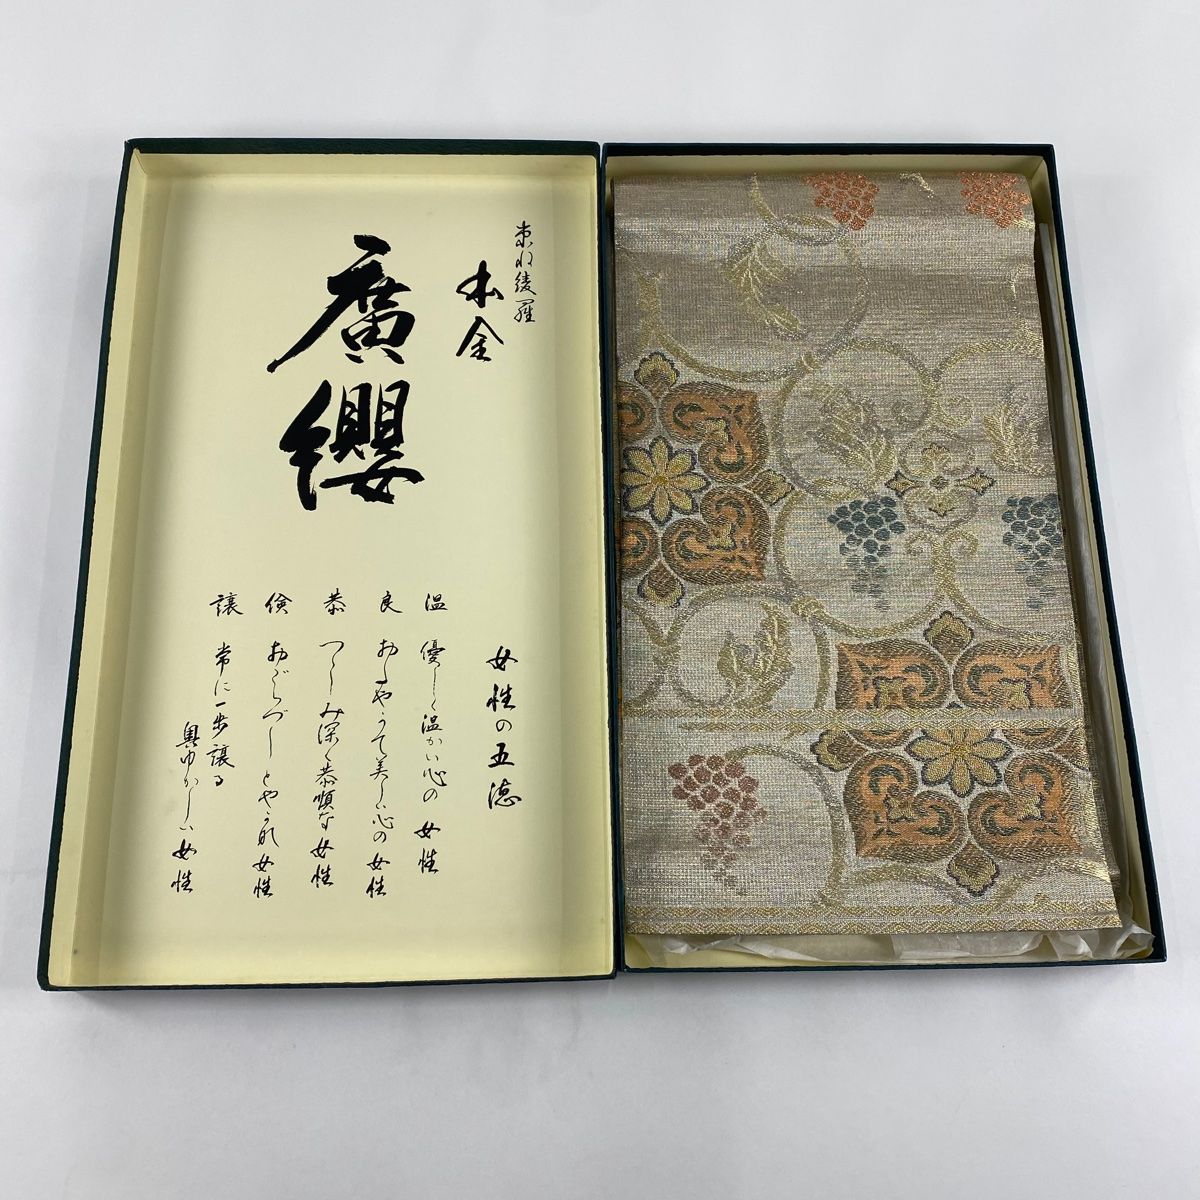 束ね綾羅
本金
廣纓
女性の五徳
温 優しく温かい心の女性
良 おだやかで美しい心の女性
恭 つゝしみ深く恭順な女性
倹 女性
譲 常に一歩譲る
奥ゆかしい女性